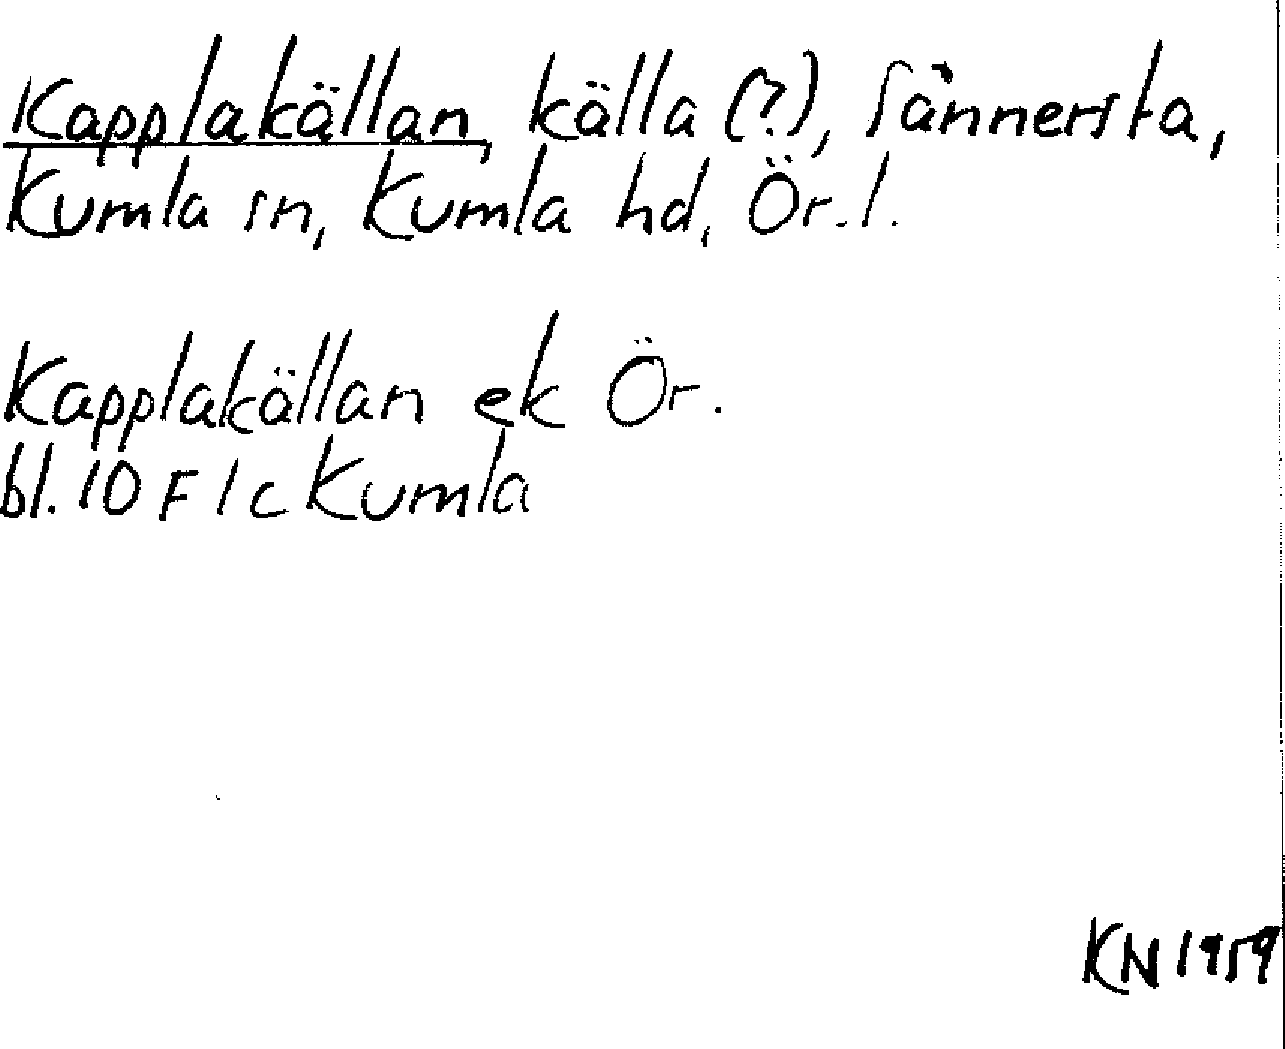 Kapplakällan, källa (?), Sånnersta,
Kumla sn, Kumla hd, Ör. l.
Kapplakällan ek Ör.
bl. 10 F 1 c Kumla
KN 1959